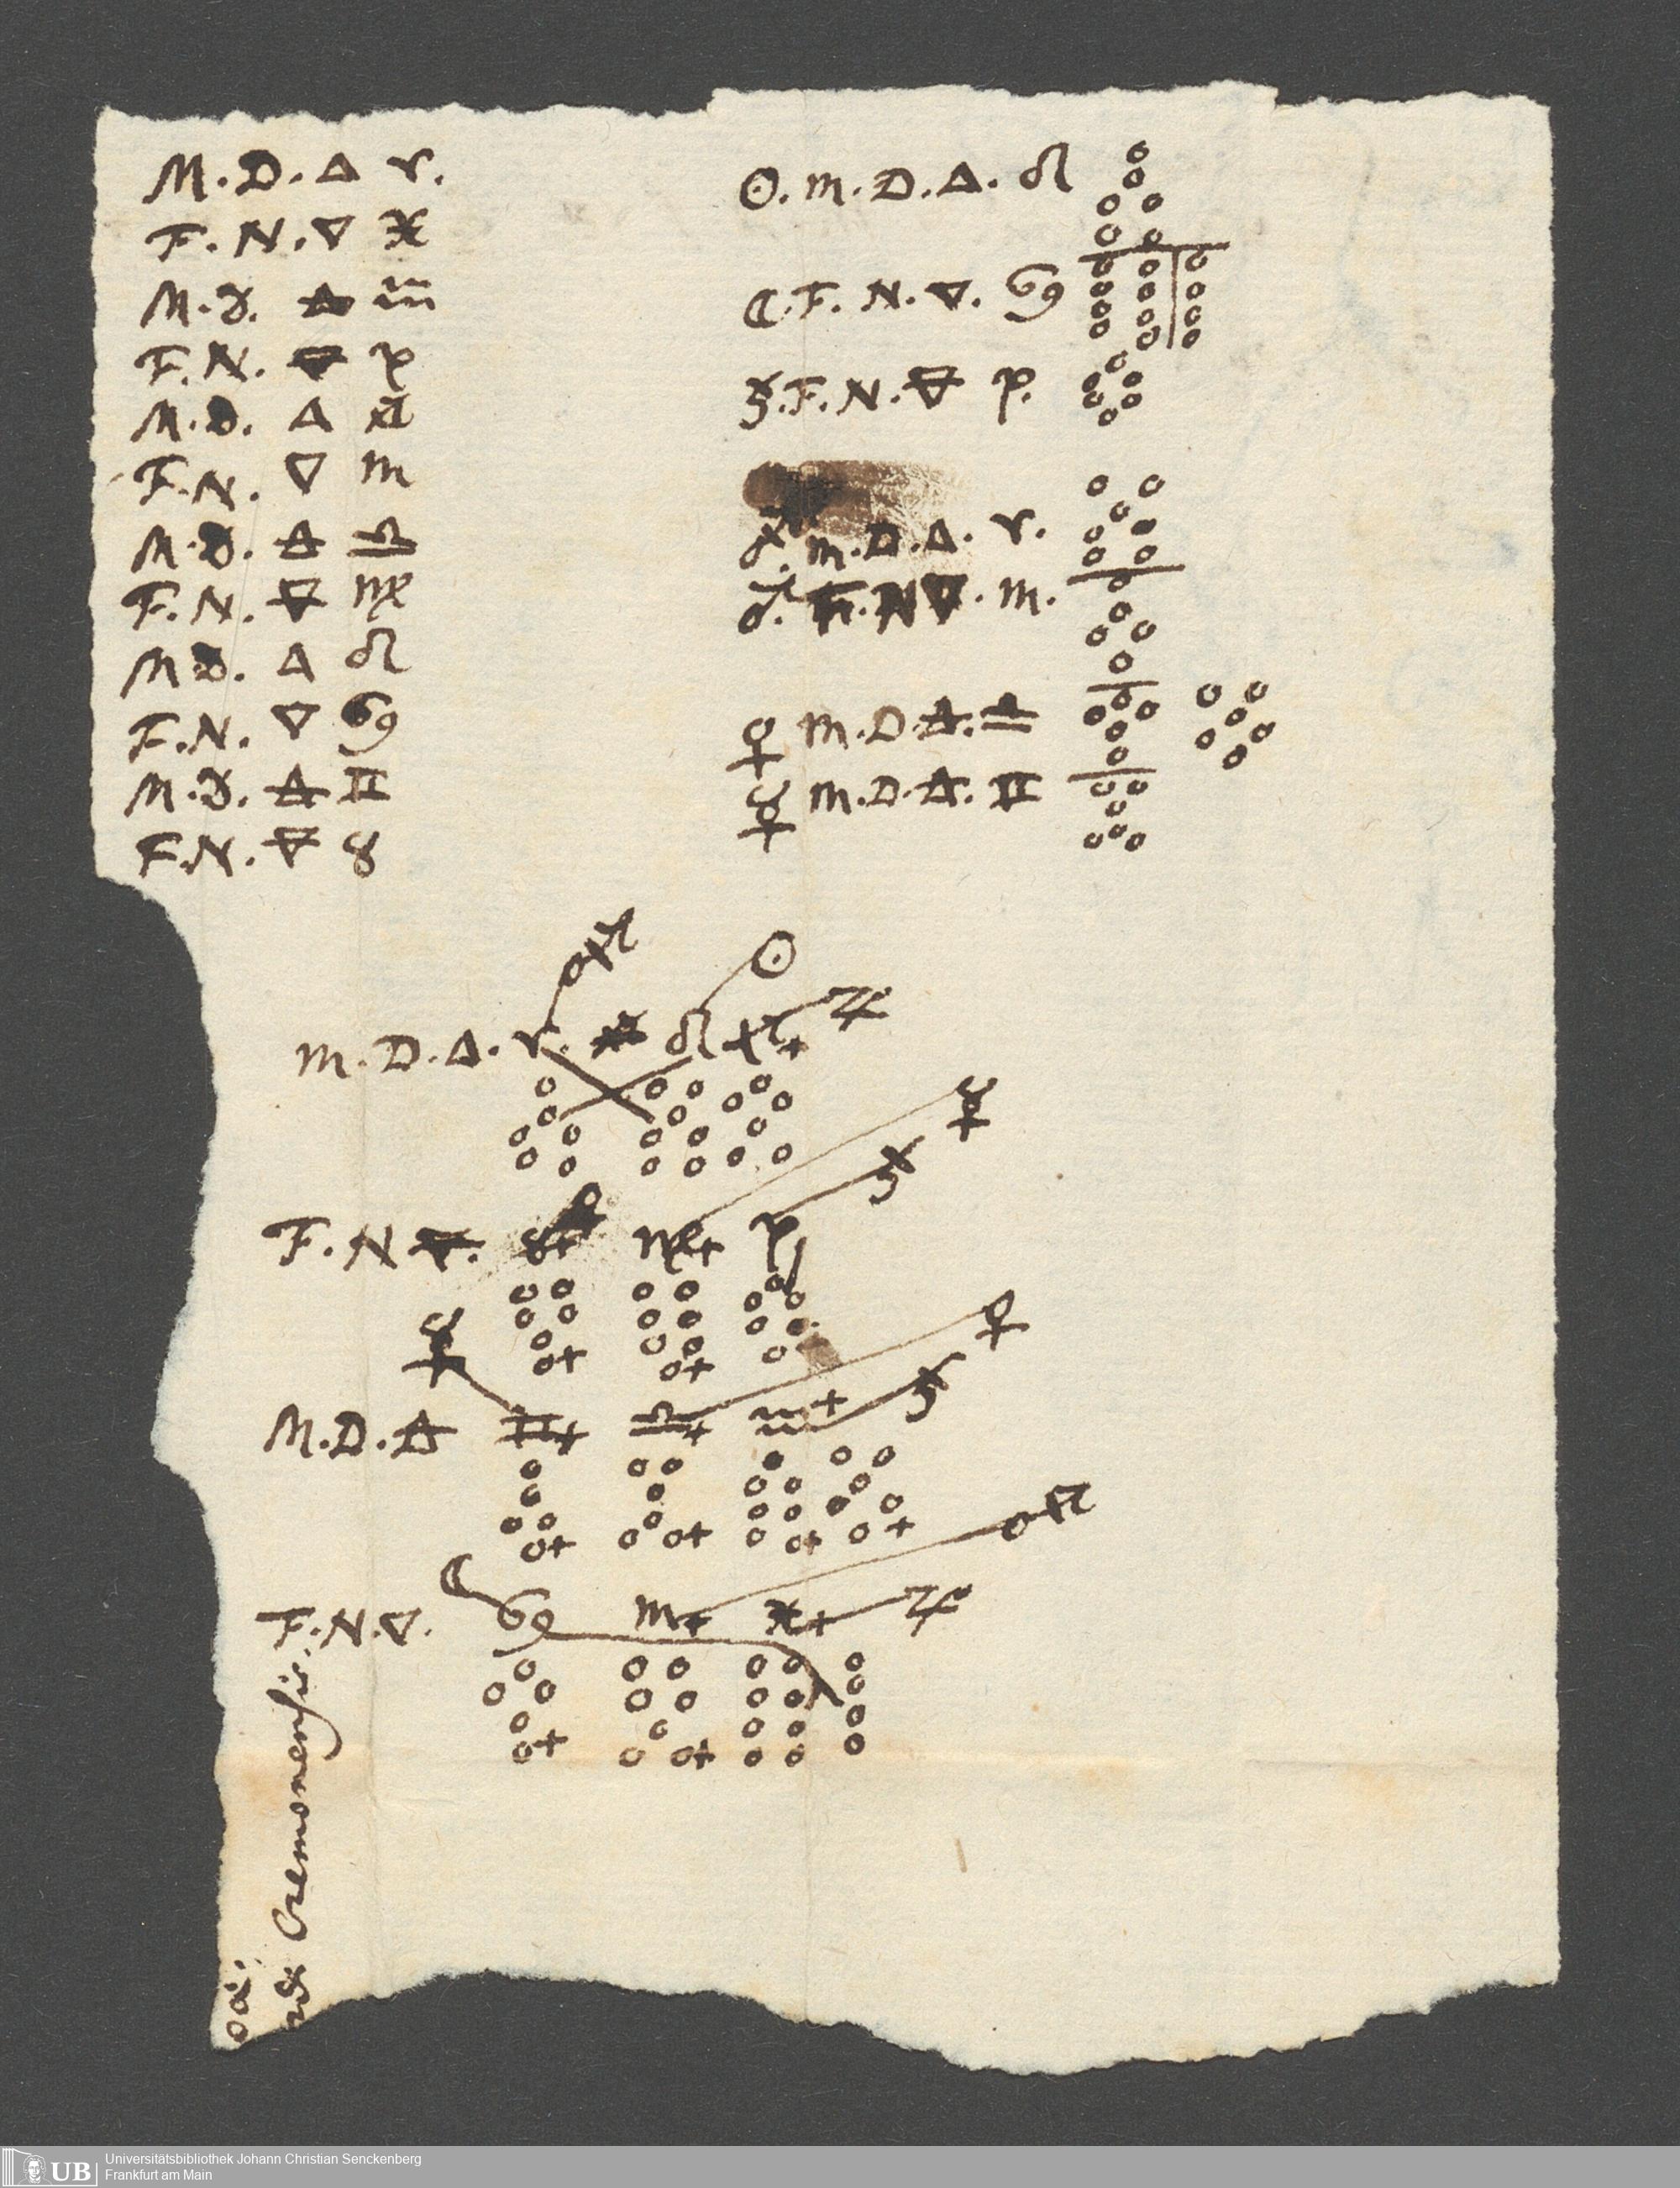 M. D. 🜂 ♈.
F. N. 🜄 ♓
M. D. 🜁 ♒
F. N. 🜃 ♑
M. D. 🜂 ♐
F. N. 🜄 ♏
M. D. 🜁 ♎
F. N. 🜃 ♍
M. D. 🜂 ♌
F. N. 🜄 ♋
M. D. 🜁 ♊
F. N. 🜃 ♉
☉. M. D. 🜂. ♌
☾. F. N. 🜄. ♋
♄. F. N. 🜃 ♑.
♂. M. D. 🜂. ♈.
♂. F. N 🜄. ♏.
♀ M. D. 🜁. ♎
☿ M. D. 🜁. ♊
♂ ☉ ♃
M. D. 🜂. ♈. ♌ ♐+
☿ ♄
F. N 🜃. ♉+ ♍+ ♑
☿ ♀ ♄
M. D. 🜁 ♊+ ♎+ ♒+
☾ ♂ ♃
F. N. 🜄. ♋ ♏+ ♓+
Cremonensis.
Universitätsbibliothek Johann Christian Senckenberg
Frankfurt am Main
UB